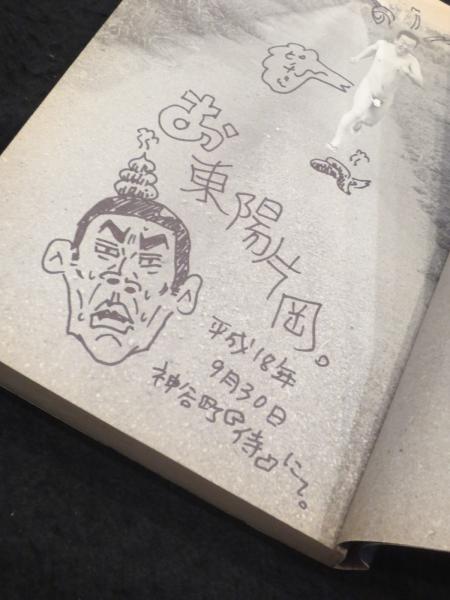 お東陽片岡。
平成18年
9月30日
神谷町 侍 にて。